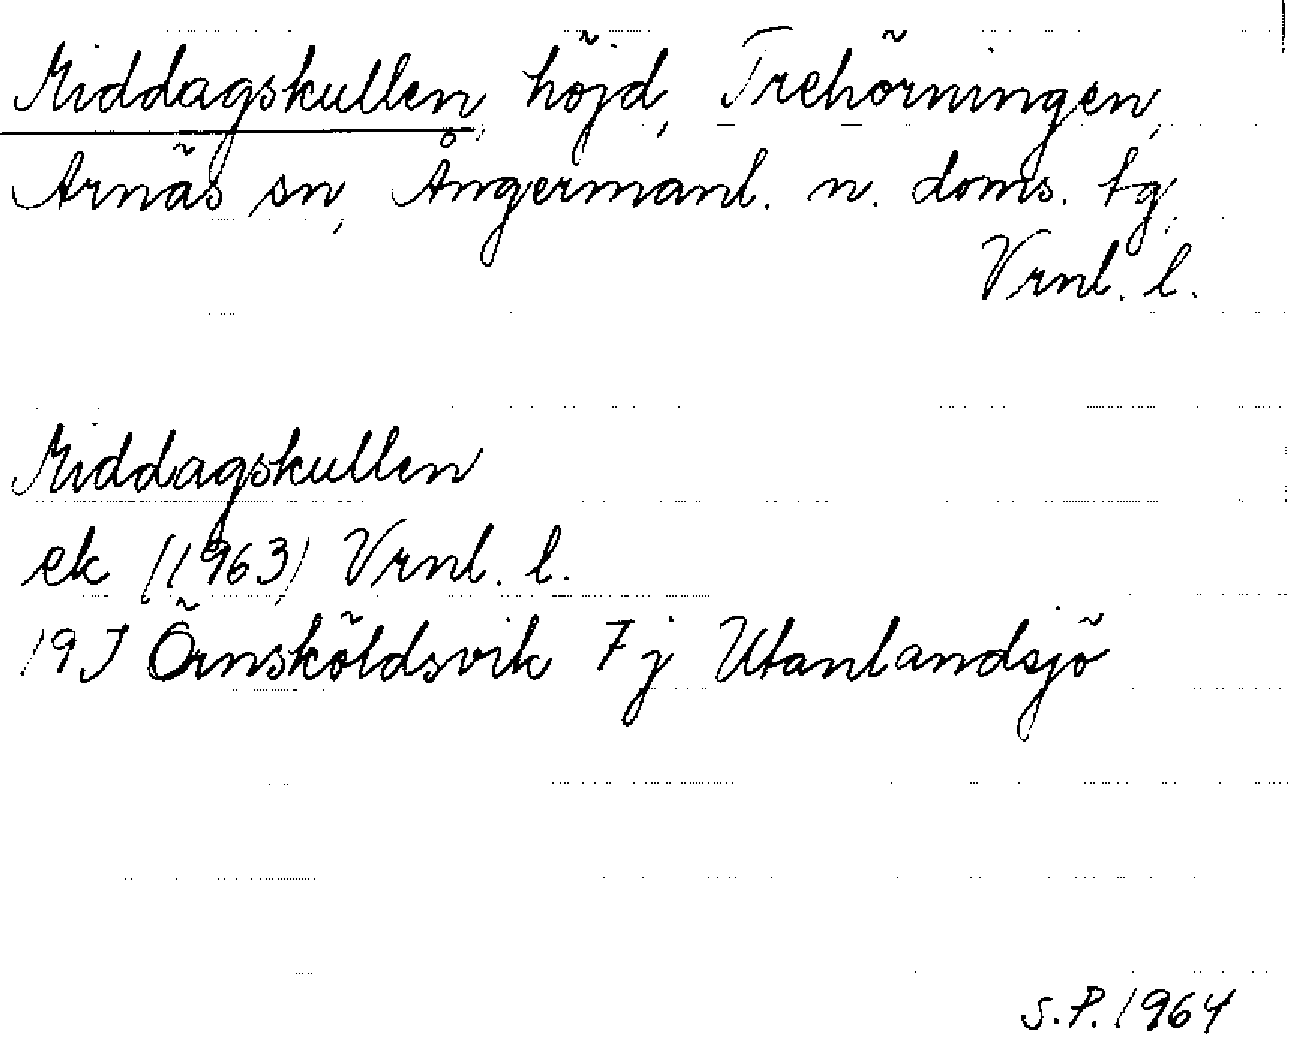 Middagskullen, höjd, Trehörningen,
Arnäs sn, Ångermanl. n. doms. tg,
Vrnl. l.
Middagskullen
ek (1963) Vrnl. l.
19 J Örnsköldsvik 7 j Utanlandsjö
S.P. 1964